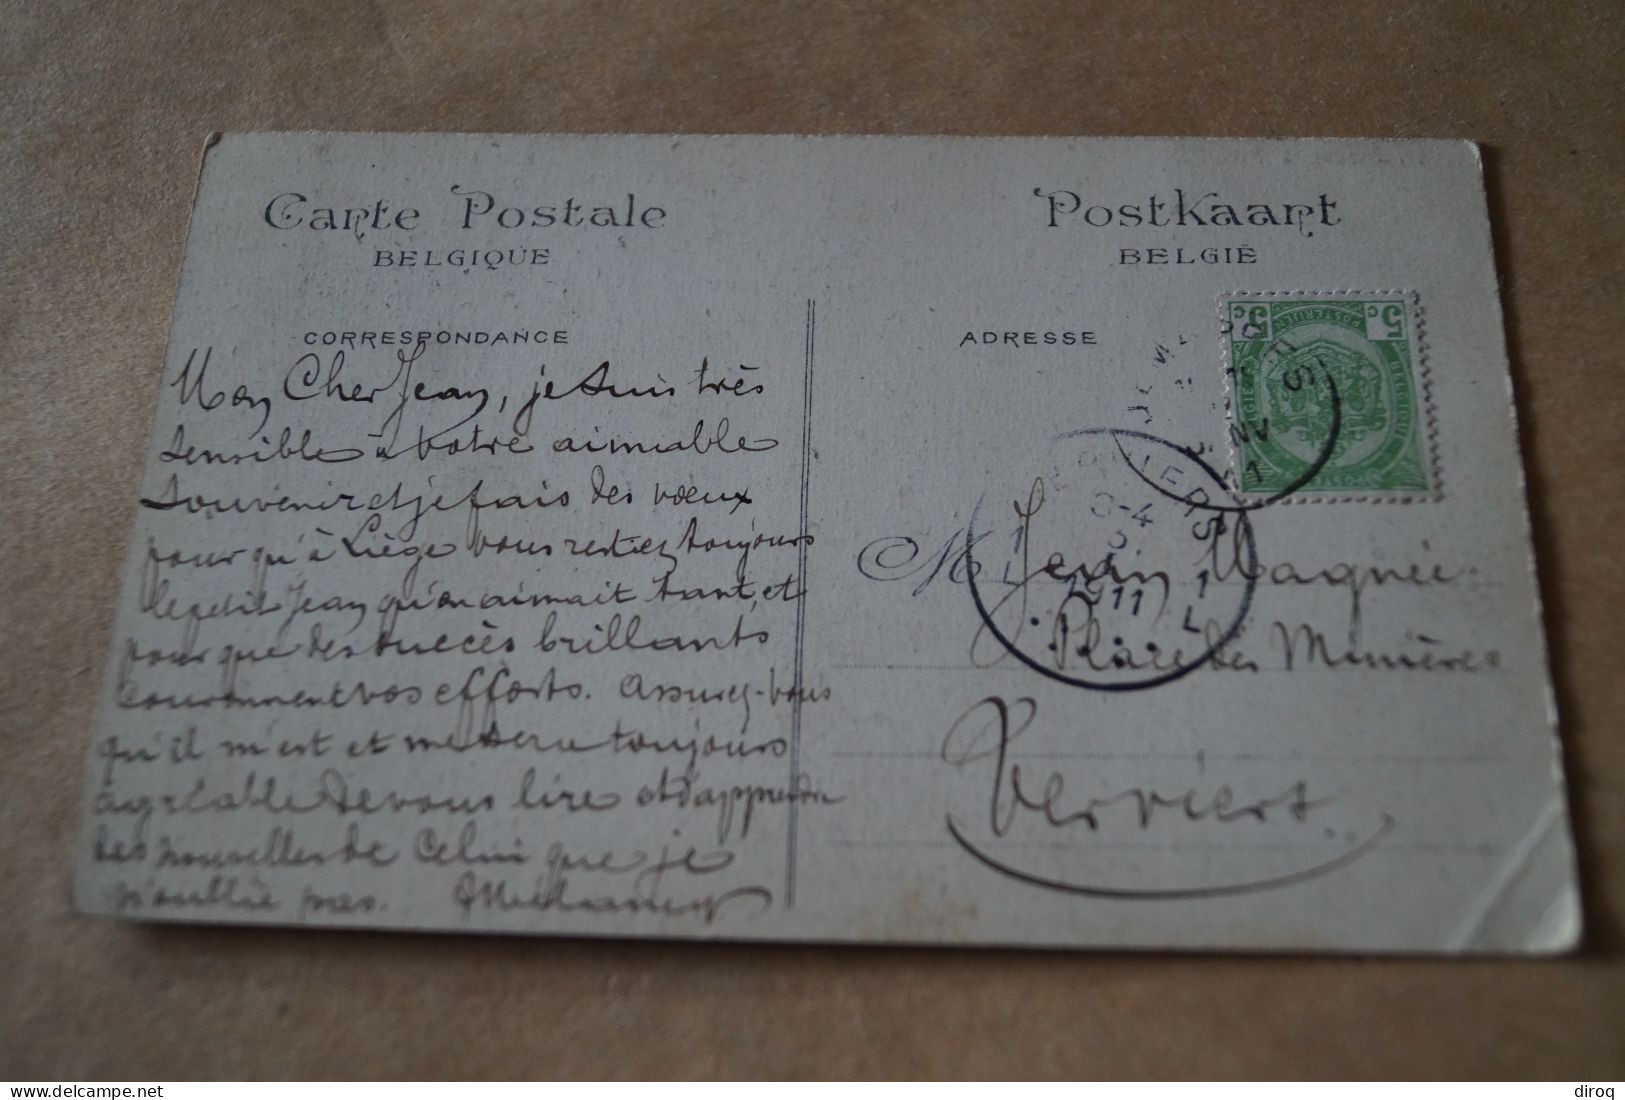 Carte Postale
BELGIQUE
CORRESPONDANCE
Mon Cher Jean, je suis très
sensible à votre aimable
souvenir et je fais des vœux
pour qu'à Liège vous restiez toujours
le petit Jean qu'on aimait tant, et
pour que des succès brillants
couronnent vos efforts. Assurez-vous
qu'il m'est et me sera toujours
agréable de vous lire et d'apprendre
des nouvelles de Celui que je
n'oublie pas.
Postkaart
BELGIË
ADRESSE
5 c 5 c
POSTERIJEN
BELGIË
BELGIQUE
POSTES
NV
VERVIERS
1911
M Jean Magnée
Place des Minières
Verviers
delcampe.net
diroq